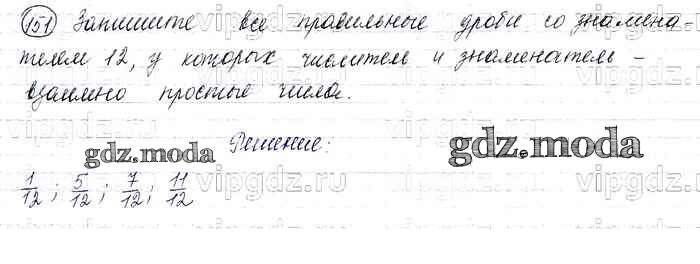 151 Запишите все правильные дроби со знамена-
телем 12, у которых числитель и знаменатель -
взаимно простые числа.
Решение:
gdz.moda gdz.moda
1/12; 5/12; 7/12; 11/12
vipgdz.ru vipgdz.ru vipgdz.ru